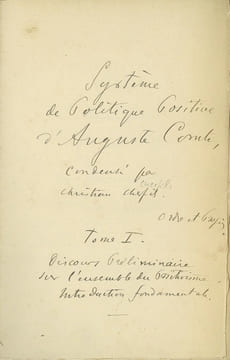 Système
de Politique Positive
d'Auguste Comte,
condensé par
Christian Cherfils.
Ordre et Progrès
Tome I.
Discours Préliminaire
sur l'ensemble du Positivisme
Introduction fondamentale.